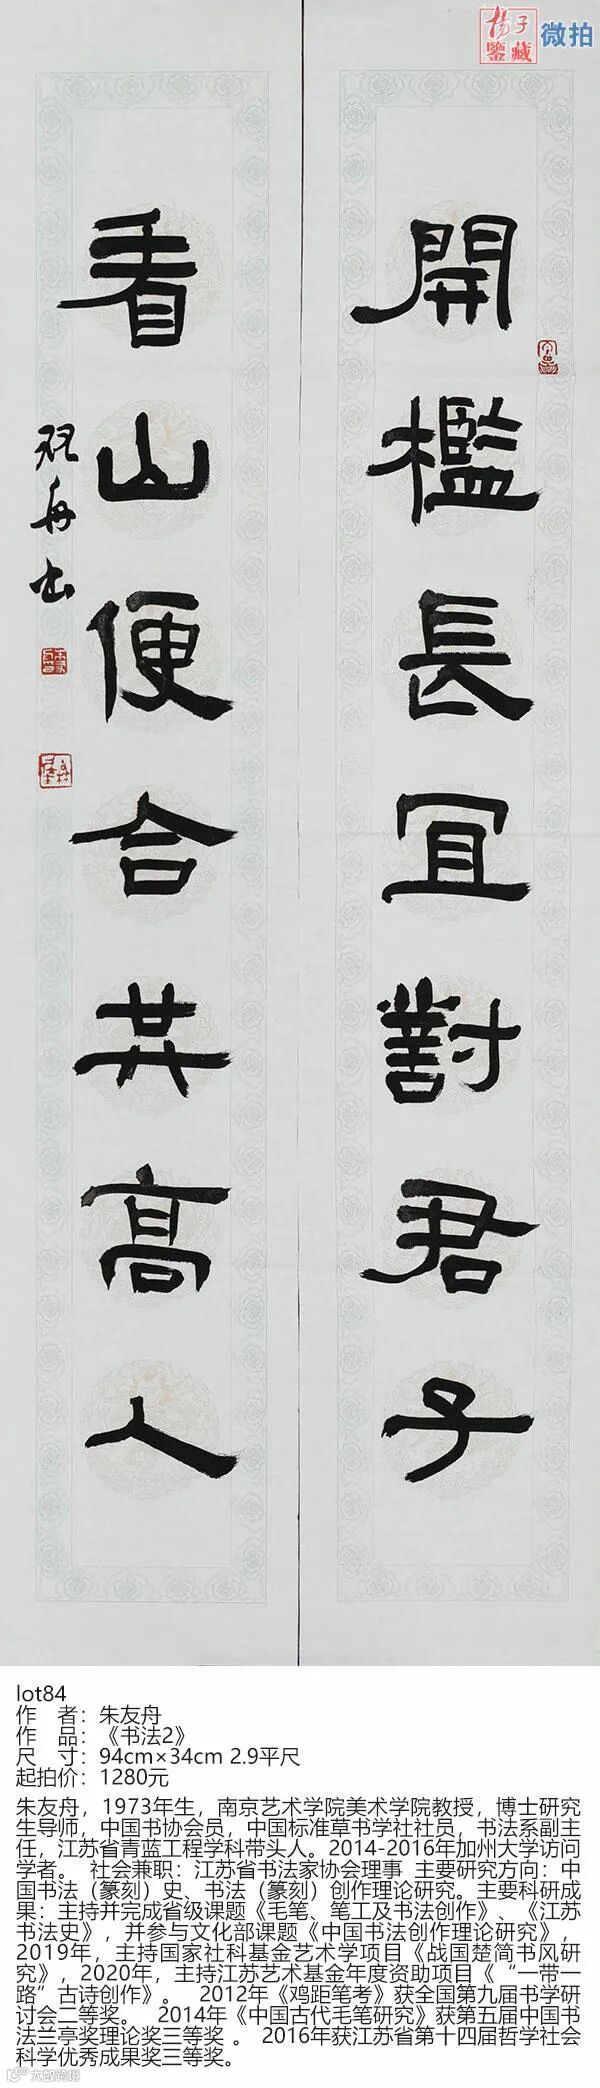 揚子
鑒藏
微拍
開檻長宜對君子
看山便合共高人
友舟書
lot84
作 者：朱友舟
作 品：《书法2》
尺 寸：94cm×34cm 2.9平尺
起拍价：1280元
朱友舟，1973年生，南京艺术学院美术学院教授，博士研究
生导师，中国书协会员，中国标准草书学社社员，书法系副主
任，江苏省青蓝工程学科带头人。2014-2016年加州大学访问
学者。 社会兼职：江苏省书法家协会理事 主要研究方向：中
国书法（篆刻）史、书法（篆刻）创作理论研究。主要科研成
果：主持并完成省级课题《毛笔、笔工及书法创作》、《江苏
书法史》，并参与文化部课题《中国书法创作理论研究》，
2019年，主持国家社科基金艺术学项目《战国楚简书风研
究》，2020年，主持江苏艺术基金年度资助项目《“一带一
路”古诗创作》。 2012年《鸡距笔考》获全国第九届书学研
讨会二等奖。 2014年《中国古代毛笔研究》获第五届中国书
法兰亭奖理论奖三等奖 。 2016年获江苏省第十四届哲学社会
科学优秀成果奖三等奖。
大数跨境